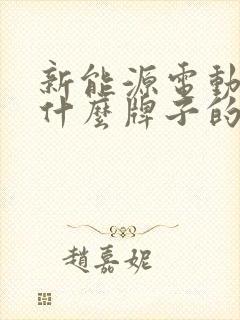 新能源電動
什麼牌子的
趙嘉妮